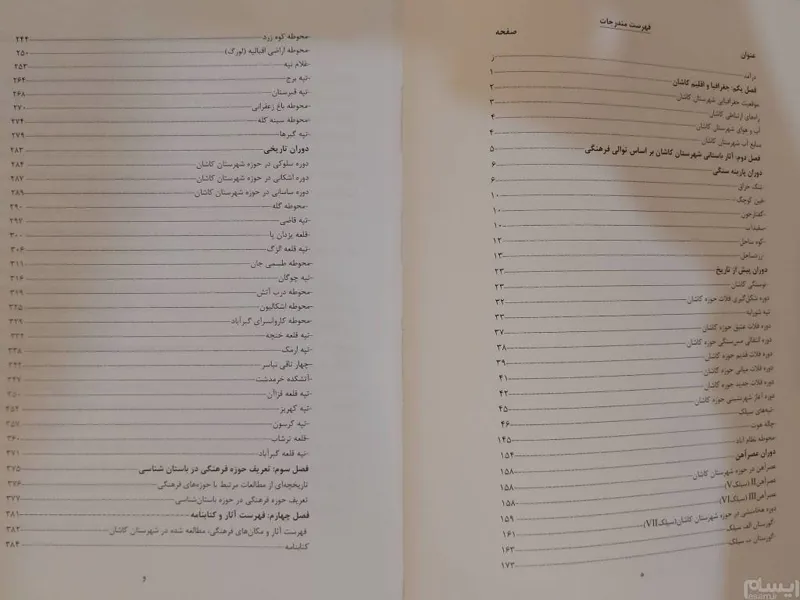 فهرست مندرجات
عنوان صفحه
درآمد ز
فصل یکم: جغرافیا و اقلیم کاشان ۱
موقعیت جغرافیایی شهرستان کاشان ۲
راه‌های ارتباطی کاشان ۳
آب و هوای شهرستان کاشان ۴
منابع آب شهرستان کاشان ۴
فصل دوم: آثار باستانی شهرستان کاشان بر اساس توالی فرهنگی ۵
دوران پارینه سنگی ۶
-تنگ خراق ۶
-فین کوچک ۱۰
-کفتارخون ۱۰
-سفیدآب ۱۰
-کوه ساحل ۱۲
-ارزساحل ۱۳
دوران پیش از تاریخ ۲۳
نوسنگی کاشان ۲۳
دوره شکل‌گیری فلات حوزه کاشان ۳۲
تپه شورابه ۳۳
دوره فلات عتیق حوزه کاشان ۳۷
دوره انتقالی مس‌سنگی حوزه کاشان ۳۸
دوره فلات قدیم حوزه کاشان ۳۹
دوره فلات میانی حوزه کاشان ۴۱
دوره فلات جدید حوزه کاشان ۴۲
دوره آغاز شهرنشینی حوزه کاشان ۴۵
-تپه‌های سیلک ۴۶
چاله هوت ۱۴۵
محوطه نظام آباد ۱۵۴
دوران عصرآهن ۱۵۸
عصرآهن در حوزه شهرستان کاشان ۱۵۸
عصرآهنII (سیلکV) ۱۵۸
عصرآهنIII (سیلکVI) ۱۵۹
دوره هخامنشی در حوزه شهرستان کاشان(سیلکVII) ۱۶۱
-گورستان الف سیلک ۱۶۳
-گورستان ب سیلک ۱۷۳
-محوطه کوه زرد ۲۴۴
محوطه اراضی اقبالیه (لورگ) ۲۵۰
-غلام تپه ۲۵۳
-تپه برج ۲۶۴
-تپه قبرستان ۲۶۸
-محوطه باغ زعفرانی ۲۷۰
-محوطه سینه کله ۲۷۴
-تپه گبرها ۲۷۹
دوران تاریخی ۲۸۳
دوره سلوکی در حوزه شهرستان کاشان ۲۸۴
دوره اشکانی در حوزه شهرستان کاشان ۲۸۷
دوره ساسانی در حوزه شهرستان کاشان ۲۸۹
-محوطه گله ۲۹۰
-تپه قاضی ۲۹۲
-قلعه یزدان پا ۳۰۰
-تپه قلعه الزگ ۳۰۶
-محوطه طلسمی جان ۳۱۱
-تپه چوگان ۳۱۶
-محوطه درب آتش ۳۱۹
-محوطه اشکالیون ۳۲۵
-محوطه کاروانسرای گبرآباد ۳۲۹
-تپه قلعه خنچه ۳۳۴
-تپه ارمک ۳۳۸
-چهار تاقی نیاسر ۳۴۲
-آتشکده خرمدشت ۳۴۷
-تپه قلعه قزاآن ۳۵۰
-تپه کهریز ۳۵۴
-تپه گرسون ۳۵۷
-قلعه نرشاب ۳۶۰
-تپه قلعه گبرآباد ۳۷۱
فصل سوم: تعریف حوزه فرهنگی در باستان شناسی ۳۷۵
تاریخچه‌ای از مطالعات مرتبط با حوزه‌های فرهنگی ۳۷۶
تعریف حوزه فرهنگی در حوزه باستان‌شناسی ۳۷۷
فصل چهارم: فهرست آثار و کتابنامه ۳۸۱
فهرست آثار و مکان‌های فرهنگی، مطالعه شده در شهرستان کاشان ۳۸۲
کتابنامه ۳۸۴
و
ایسام
esam.ir